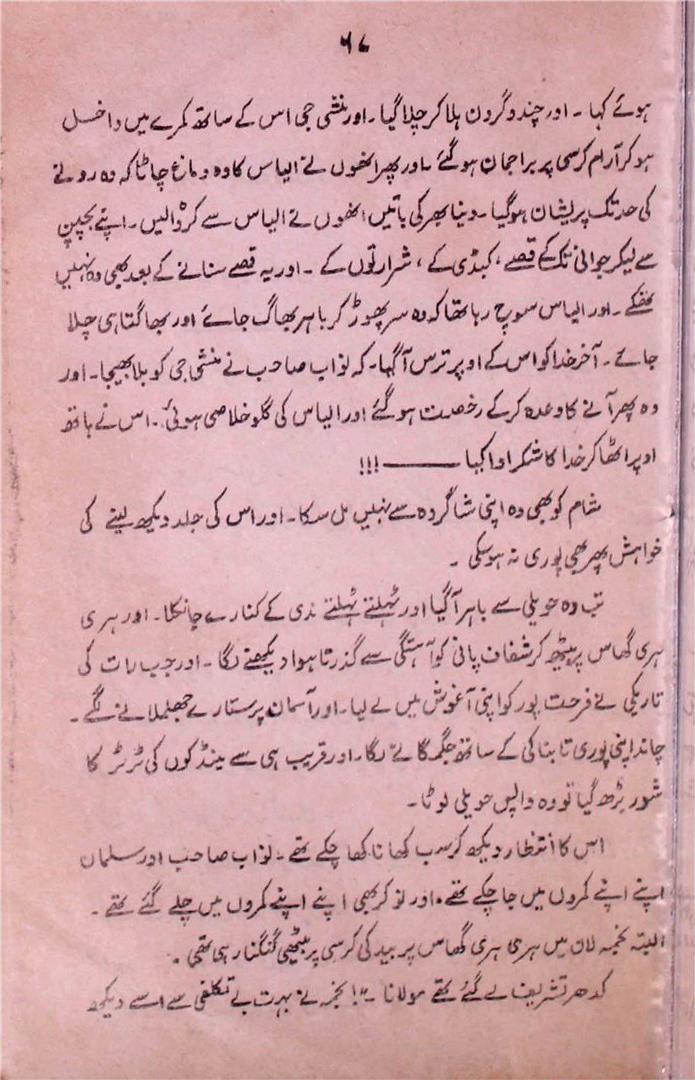 ۶۷
ہوئے کہا ۔ اور چندو گردن ہلا کر چلا گیا ۔ اور منشی جی اس کے ساتھ کمرے میں داخل
ہو کر آرام کرسی پر براجمان ہو گئے ۔ اور پھر انھوں نے الیاس کا وہ دماغ چاٹا کہ وہ رونے
کی حد تک پریشان ہوگیا ۔ دنیا بھر کی باتیں انھوں نے الیاس سے کر ڈالیں ۔ اپنے بچپن
سے لیکر جوانی تک کے قصے ، کبڈی کے ، شرارتوں کے ۔ اور یہ قصے سنانے کے بعد بھی وہ نہیں
تھکے ۔ اور الیاس سوچ رہا تھا کہ وہ سر پھوڑ کر باہر بھاگ جائے اور بھاگتا ہی چلا
جائے ۔ آخر خدا کو اس کے اوپر ترس آگیا ۔ کہ نواب صاحب نے منشی جی کو بلا بھیجا ۔ اور
وہ پھر آنے کا وعدہ کر کے رخصت ہو گئے اور الیاس کی گلو خلاصی ہوئی ۔ اس نے ہاتھ
اوپر اٹھا کر خدا کا شکر ادا کیا ——— !!!
شام کو بھی وہ اپنی شاگردہ سے نہیں مل سکا ۔ اور اس کی جلد دیکھ لینے کی
خواہش پھر بھی پوری نہ ہو سکی ۔
تب وہ حویلی سے باہر آگیا اور ٹہلتے ٹہلتے ندی کے کنارے جا نکلا ۔ اور ہری
ہری گھاس پر بیٹھ کر شفاف پانی کو آہستگی سے گذرتا ہوا دیکھنے لگا ۔ اور جب رات کی
تاریکی نے فرحت پور کو اپنی آغوش میں لے لیا ۔ اور آسمان پر ستارے جھلملانے لگے ۔
چاند اپنی پوری تابناکی کے ساتھ جگمگانے لگا ۔ اور قریب ہی سے مینڈکوں کی ٹرٹر کا
شور بڑھ گیا تو وہ واپس حویلی لوٹا ۔
اس کا انتظار دیکھ کر سب کھانا کھا چکے تھے ۔ نواب صاحب اور سلمان
اپنے اپنے کمروں میں جا چکے تھے ۔ اور نوکر بھی اپنے اپنے کمروں میں چلے گئے تھے ۔
البتہ نجمہ لان میں ہری ہری گھاس پر بید کی کرسی پر بیٹھی گنگنا رہی تھی ۔
کدھر تشریف لے گئے تھے مولانا ۔"! نجمہ نے بہت بے تکلفی سے اسے دیکھ